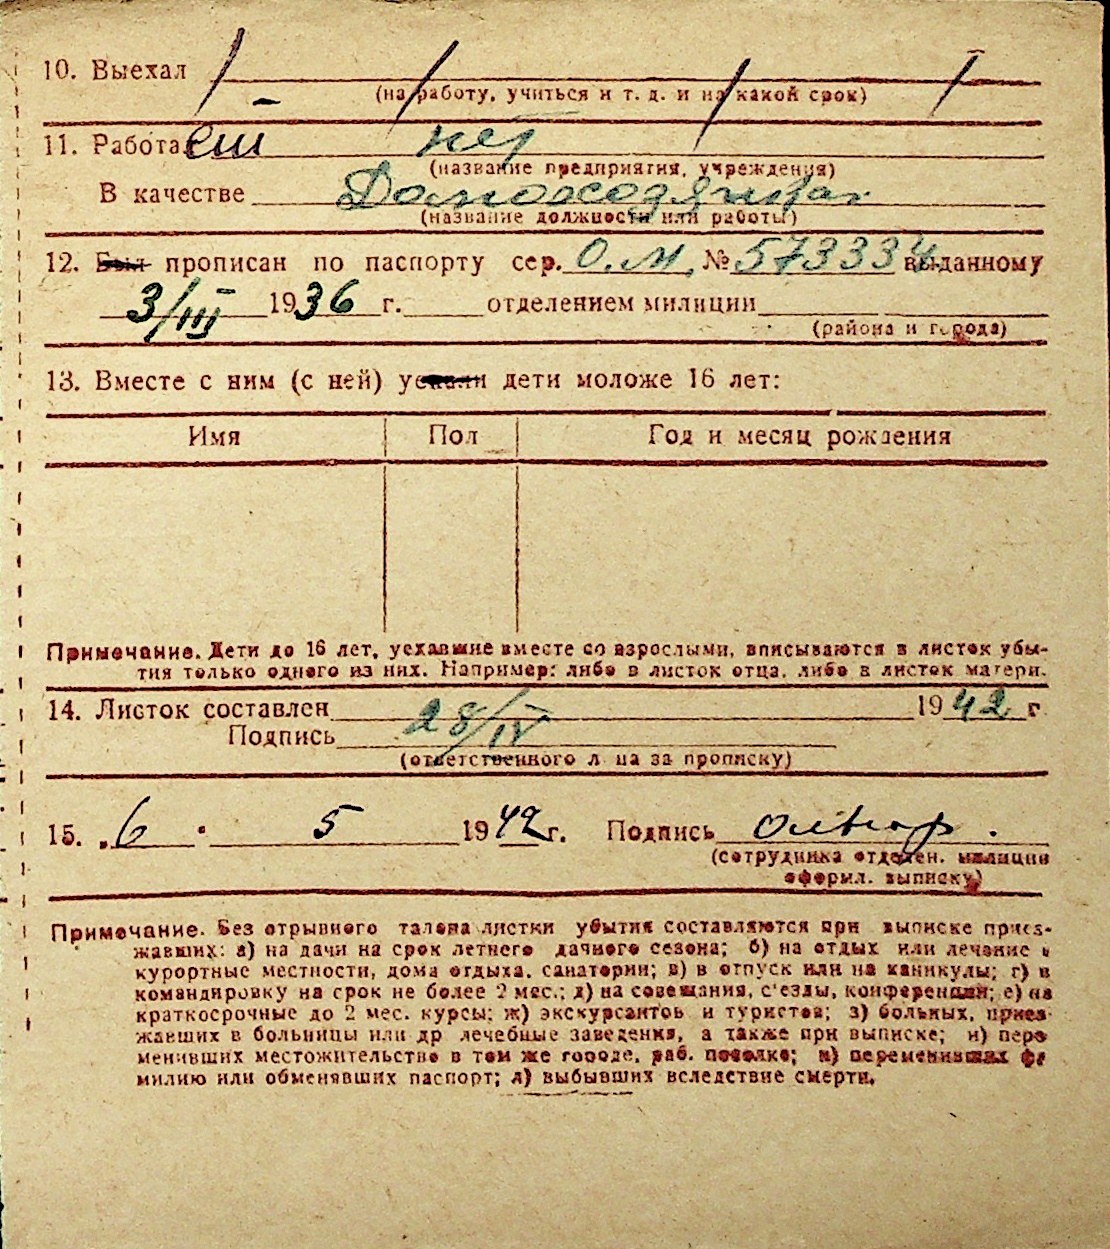 10. Выехал
(на работу, учиться и т. д. и на какой срок)
11. Работа ет нет
(название предприятия, учреждения)
В качестве Домохозяйка
(название должности или работы)
12. Был прописан по паспорту сер. О.М. № 573334 выданному
3/III 1936 г. отделением милиции
(района и города)
13. Вместе с ним (с ней) уехали дети моложе 16 лет:
Имя Пол Год и месяц рождения
Примечание. Дети до 16 лет, уехавшие вместе со взрослыми, вписываются в листок убы-
тия только одного из них. Например: либо в листок отца, либо в листок матери.
14. Листок составлен 28/IV 1942 г
Подпись
(ответственного лица за прописку)
15. „6 " 5 1942 г. Подпись
(сотрудника отделен. милиции
оформл. выписку)
Примечание. Без отрывного талона листки убытия составляются при выписке приез-
жавших: а) на дачи на срок летнего дачного сезона; б) на отдых или лечение в
курортные местности, дома отдыха, санатории; в) в отпуск или на каникулы; г) в
командировку на срок не более 2 мес.; д) на совещания, с'езды, конференции; е) на
краткосрочные до 2 мес. курсы; ж) экскурсантов и туристов; з) больных, приез-
жавших в больницы или др лечебные заведения, а также при выписке; и) пере
менивших местожительство в том же городе, раб. поселке; к) переменивших фа
милию или обменявших паспорт; л) выбывших вследствие смерти.